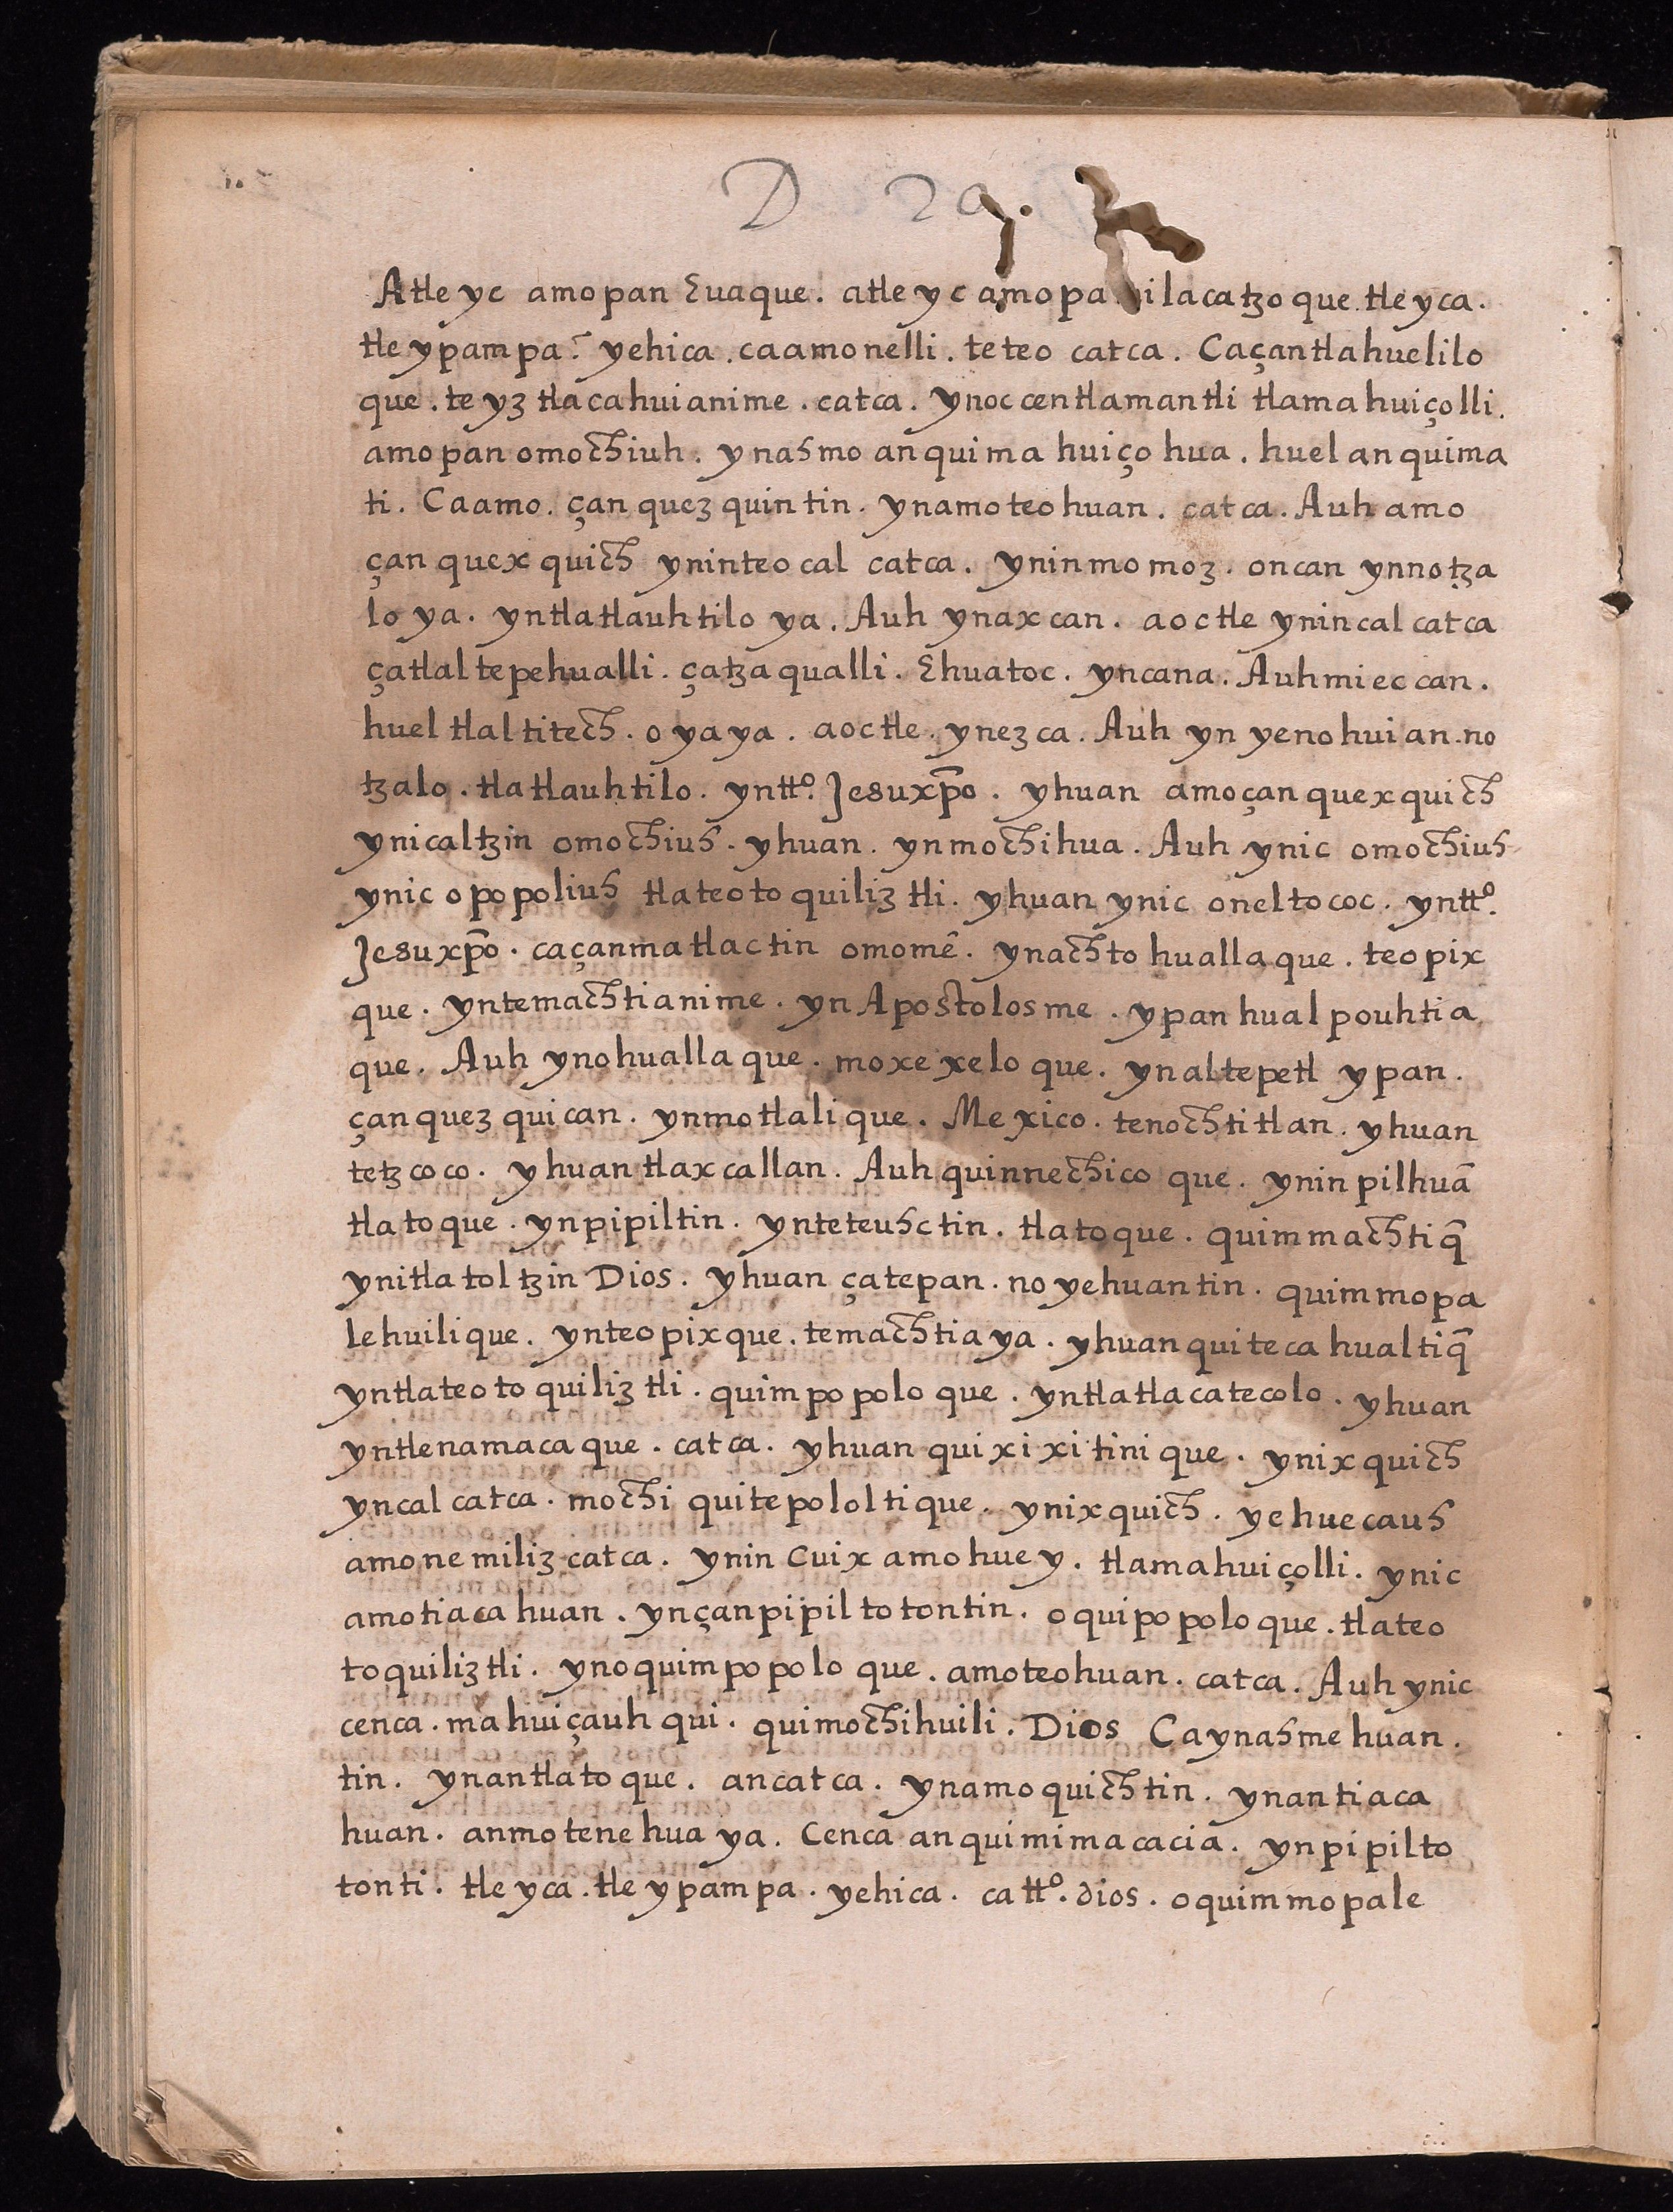 D 29.
Atle yc amopan Euaque. atle yc amopa ilacatzoque. tleyca.
tle ypampa? yehica. caamonelli. teteo catca. Caçantlahuelilo
que. te yztlacahuianime. catca. ynoccentlamantli tlamahuiçolli.
amopan omochiuh. ynahmo anquimahuiçohua. huel anquima
ti. Caamo. çan quezquintin. ynamoteohuan. catca. Auh amo
çan quexquich yninteocal catca. yninmomoz. oncan ynnotza
loya. yntlatlauhtiloya. Auh ynaxcan. aoctle ynincal catca
çatlaltepehualli. çatzaqualli. Ehuatoc. yncana. Auhmieccan.
huel tlaltitech. oyaya. aoctle. ynezca. Auh yn yenohuian. no
tzalo. tlatlauhtilo. yntto. Jesuxpo. yhuan amoçanquexquich
ynicaltzin omochiuh. yhuan. ynmochihua. Auh ynic omochiuh
ynic opopoliuh tlateotoquiliztli. yhuan ynic oneltococ. yntto.
Jesuxpo. caçanmatlactin omomē. ynachto huallaque. teopix
que. yntemachtianime. yn Apostolosme. ypan hualpouhtia
que. Auh ynohuallaque. moxexeloque. ynaltepetl ypan.
çanquezquican. ynmotlalique. Mexico. tenochtitlan. yhuan
tetzcoco. yhuan tlaxcallan. Auh quinnechicoque. yninpilhuā
tlatoque. ynpipiltin. ynteteuhctin. tlatoque. quimmachtiq̄
ynitlatoltzin Dios. yhuan çatepan. no yehuantin. quimmopa
lehuilique. ynteopixque. temachtiaya. yhuan quitecahualtiq̄
yntlateotoquiliztli. quimpopoloque. yntlatlacatecolo. yhuan
yntlenamacaque. catca. yhuan quixixitinique. ynixquich
yncal catca. mochi quitepololtique. ynixquich. yehuecauh
amonemiliz catca. ynin cuix amohuey. tlamahuiçolli. ynic
amotiacahuan. ynçanpipiltotontin. oquipopoloque. tlateo
toquiliztli. ynoquimpopoloque. amoteohuan. catca. Auh ynic
cenca. mahuiçauhqui. quimochihuili. Dios Caynahmehuan.
tin. ynantlatoque. ancatca. ynamoquichtin. ynantiaca
huan. anmotenehuaya. Cenca anquimimacacia. ynpipilto
tonti. tleyca. tle ypampa. yehica. ca tto. dios. oquimmopale